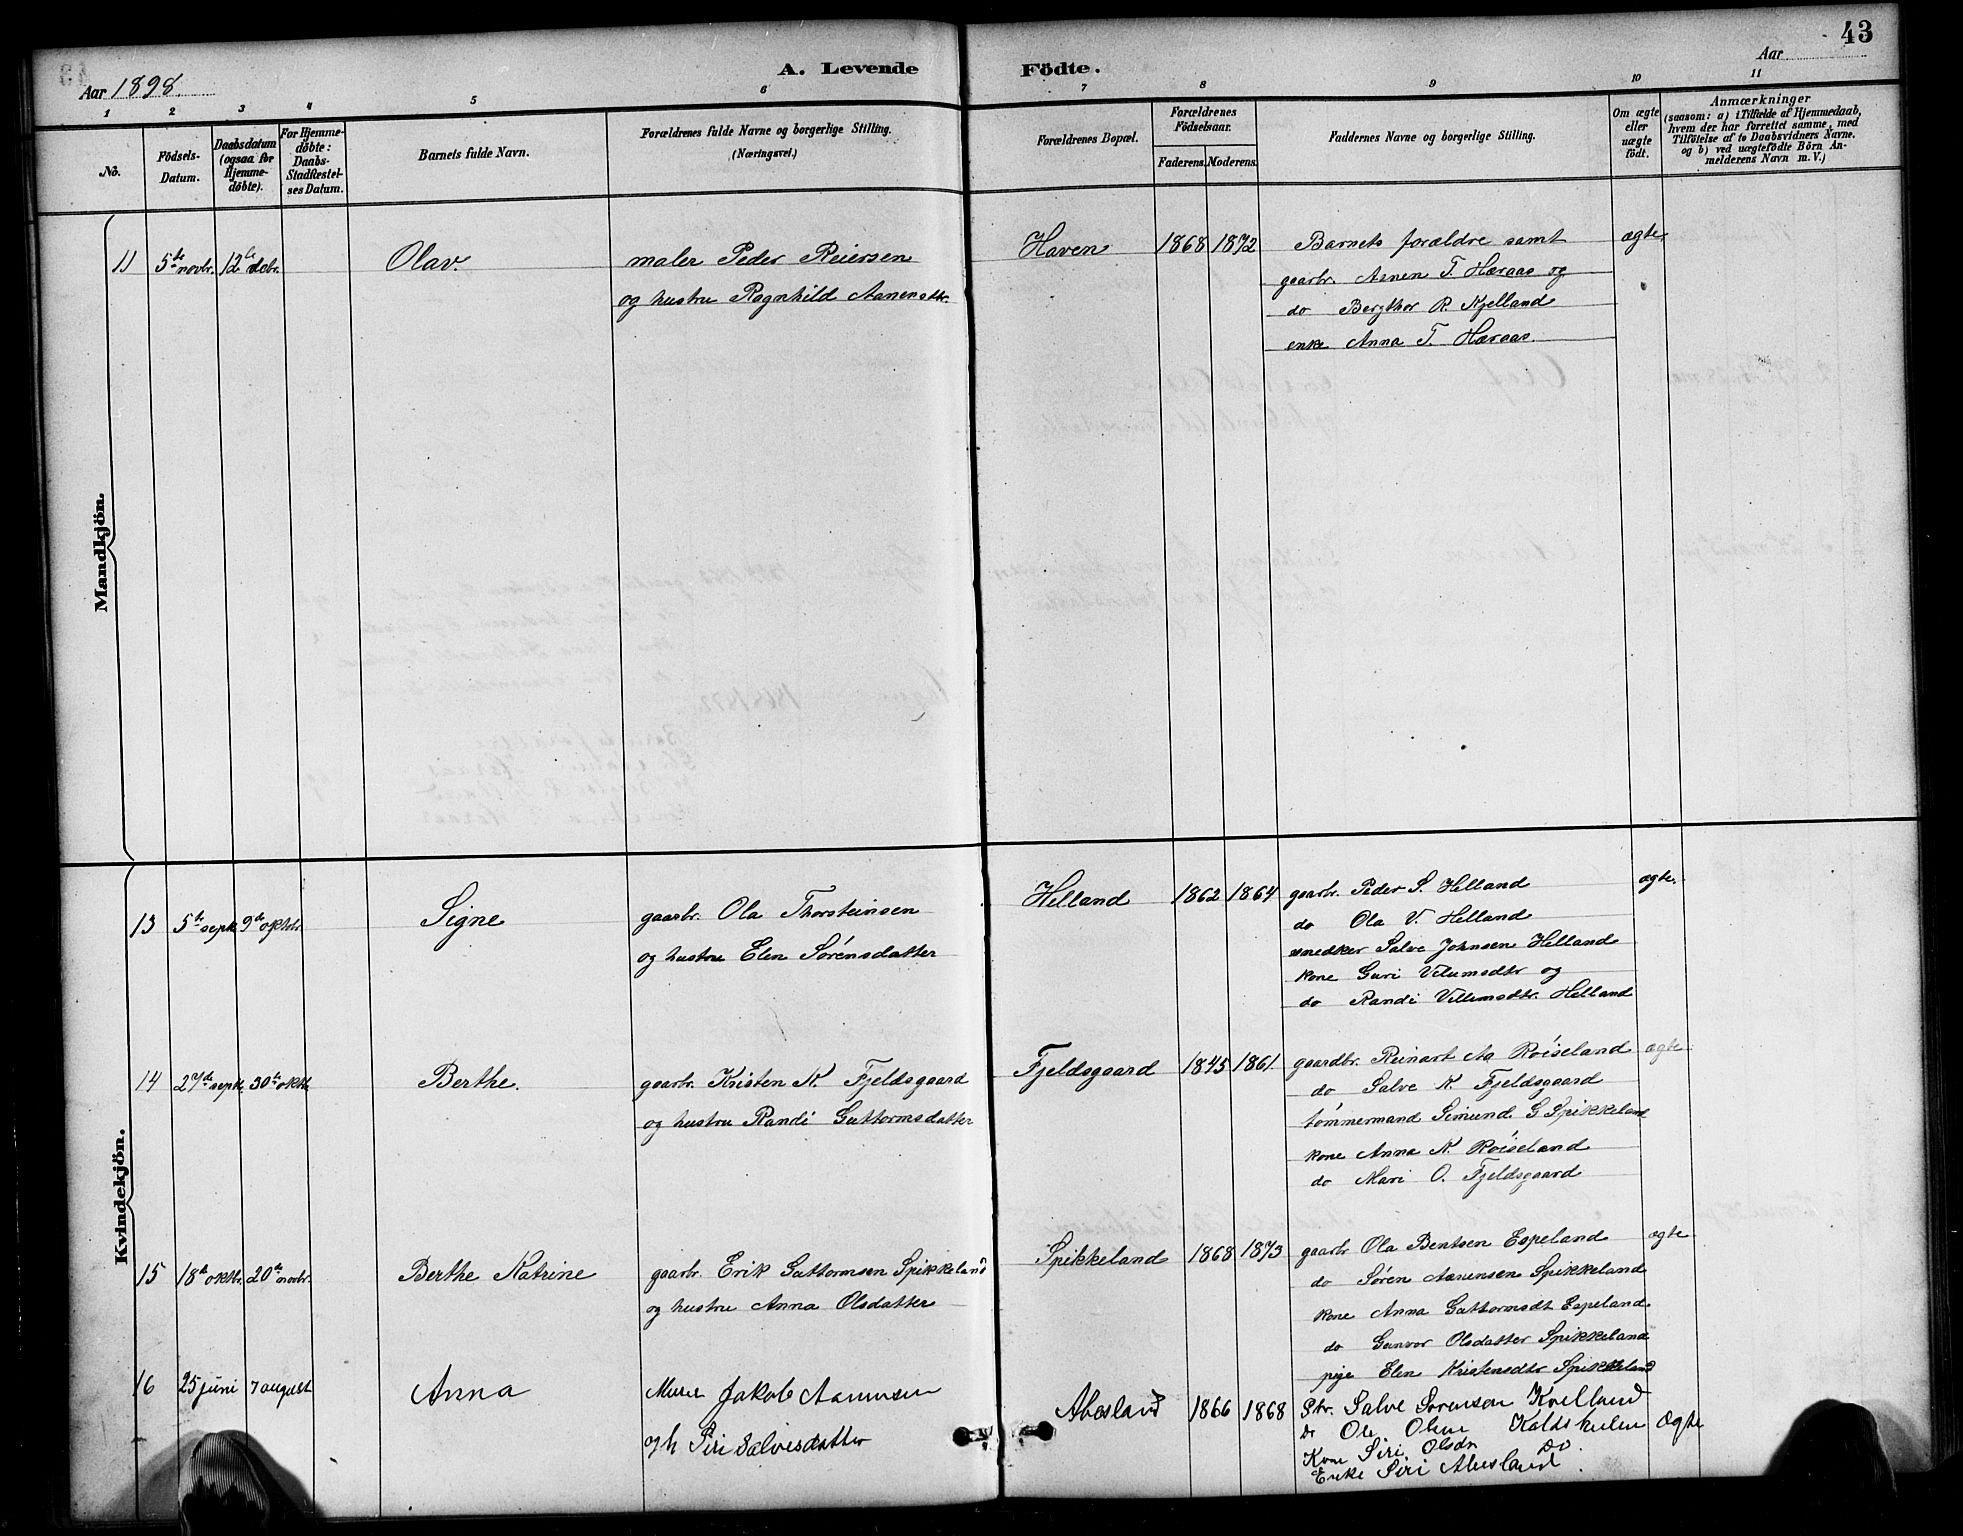 43
Aar 1898.
A. Levende Födte.
Aar
1 2 3 4 5 6 7 8 9 10 11
No.
Födsels-Datum.
Daabsdatum (ogsaa for Hjemme-döbte).
For Hjemme-döbte: Daabs-Stadfæstel-ses Datum.
Barnets fulde Navn.
Forældrenes fulde Navne og borgerlige Stilling.
(Næringsvei.)
Forældrenes Bopæl.
Forældrenes Födselsaar.
Faderens. Moderens.
Faddernes Navne og borgerlige Stilling.
Om ægte eller uægte födt.
Anmærkninger
(saasom: a) i Tilfælde af Hjemmedaab,
hvem der har forrettet samme, med
Tilföielse af to Daabsvidners Navne.
og b) ved uægtefödte Börn An-
melderens Navn m. V.)
Mandkjön.
11 5te novbr. 12te decbr. Olav. maler Peder Reiersen Haven 1868 1872 Barnets forældre samt ægte.
og hustru Ragnhild Aanensdtr. gaarbr. Asnen T. Hæraas og
do Bergthor R. Kjelland
enke Anna T. Hæraas.
Kvindekjön.
13 5te septr. 9de oktbr. Signe gaarbr. Ola Thorsteinsen Helland 1862 1864 gaarbr. Peder S. Helland ægte.
og hustru Elen Sörensdatter do Ola V. Helland
snedker Salve Johnsen Helland
kone Guri Vilumsdtr og
do Randi Villumsdtr. Helland
14 27de septr. 30te oktbr. Berthe. gaarbr. Kristen K. Fjeldsgaard Fjeldsgaard 1845 1861 gaardbr. Reinart Aa Röiseland ægte.
og hustru Randi Guttormsdatter do Salve K. Fjeldsgaard
tömmermand Simund G Spikkeland
kone Anna K. Röiseland
do Mari O. Fjeldsgaard
15 18de oktbr. 20te novbr. Berthe Katrine gaarbr. Erik Guttormsen Spikkeland Spikkeland 1868 1873 gaarbr Ola Bentsen Espeland ægte
og hustru Anna Olsdatter do Sören Aanensen Spikkeland
kone Anna Guttormsdt Espeland
do Gunvor Olsdatter Spikkeland
pige Elen Kristensdtr Spikkeland
16 25 juni 7 august Anna Murer Jakob Aanensen Abesland 1866 1868 Gbr. Salve Sörensen Kvelland
og h Siri Salvesdatter Do Ole Olsen Koldskulen Ægte
Kone Siri Olsdr Do
Enke Siri Abesland.